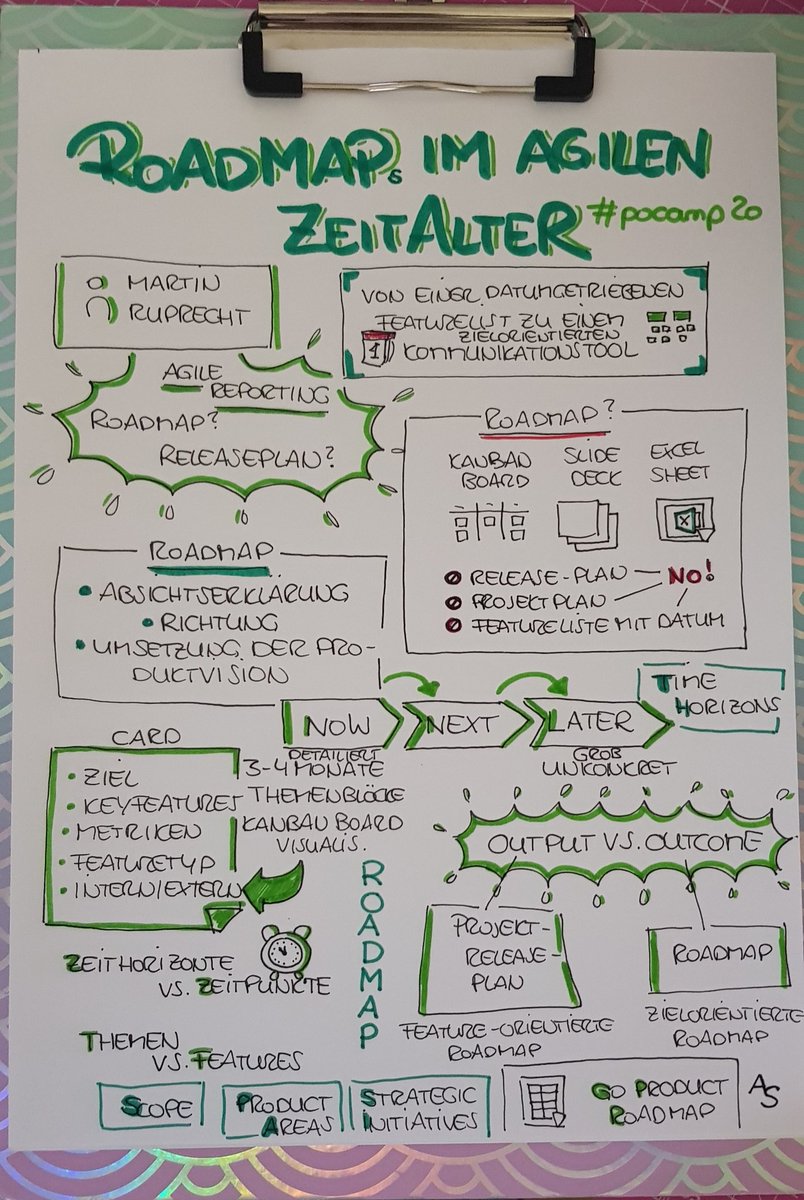 ROADMAPs IM AGILEN
ZEITALTER #pocamp20
MARTIN
RUPRECHT
VON EINER DATUMGETRIEBENEN
FEATURELIST ZU EINEM
ZIELORIENTIERTEN
1 KOMMUNIKATIONSTOOL
AGILE
REPORTING
ROADMAP?
RELEASEPLAN?
ROADMAP?
KANBAN
BOARD
SLIDE
DECK
EXCEL
SHEET
X
RELEASE-PLAN NO!
PROJEKTPLAN
FEATURELISTE MIT DATUM
ROADMAP
• ABSICHTSERKLÄRUNG
• RICHTUNG
• UMSETZUNG DER PRO-
DUKTVISION
NOW NEXT LATER
TIME
HORIZONS
DETAILIERT
3-4 MONATE
THEMENBLÖCKE
KANBAN BOARD
VISUALIS.
GROB
UNKONKRET
CARD
• ZIEL
• KEYFEATURES
• METRIKEN
• FEATURETYP
• INTERN/EXTERN
OUTPUT VS. OUTCOME
PROJEKT-
RELEASE-
PLAN
FEATURE-ORIENTIERTE
ROADMAP
ROADMAP
ZIELORIENTIERTE
ROADMAP
ROADMAP
ZEITHORIZONTE
VS. ZEITPUNKTE
THEMEN
VS. FEATURES
SCOPE
PRODUCT
AREAS
STRATEGIC
INITIATIVES
GO PRODUCT
ROADMAP
AS